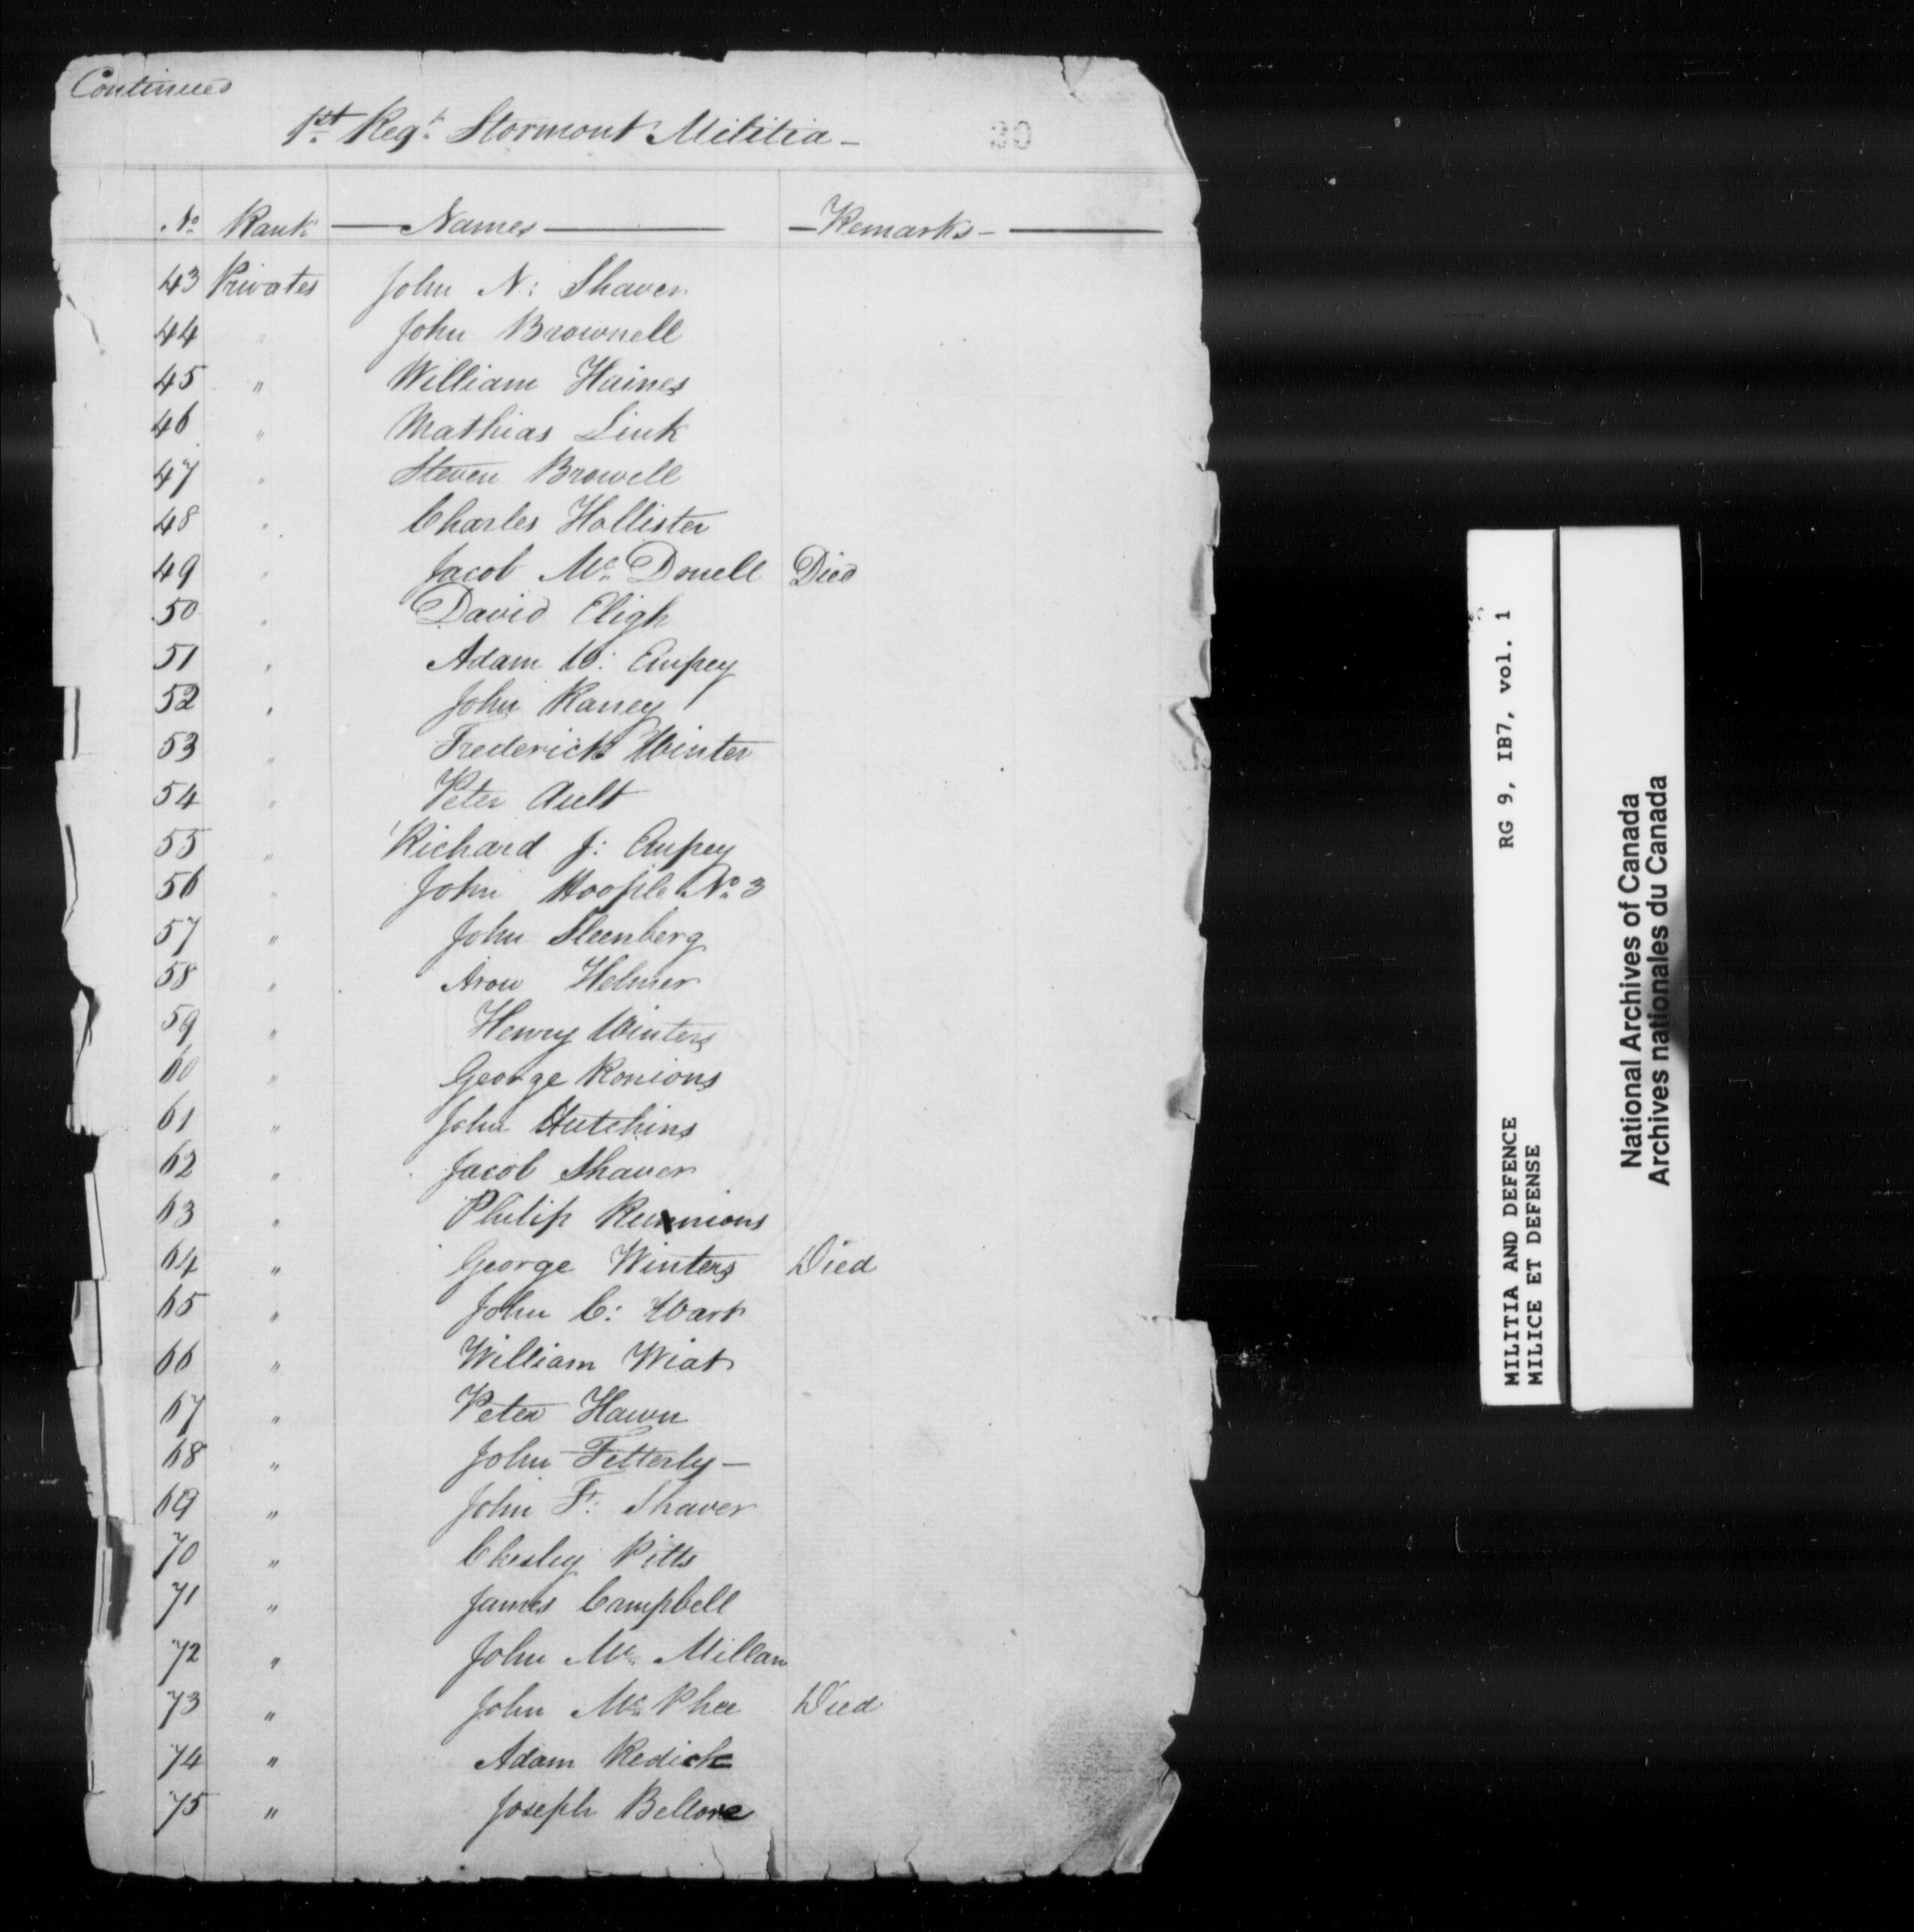 Continued
1st Regt. Stormont Militia -
30
No. Rank Names Remarks
43 Privates John N: Shaver
44 " John Brownell
45 " William Haines
46 " Mathias Link
47 " Steven Browell
48 " Charles Hollister
49 " Jacob Mc. Donell Died
50 " David Eligh
51 " Adam W: Empey
52 " John Raney
53 " Frederick Winter
54 " Peter Ault
55 " Richard J: Empey
56 " John Hoople No. 3
57 " John Sleenberg
58 " Arow Helmer
59 " Henry Winters
60 " George Ronions
61 " John Hutchins
62 " Jacob Shaver
63 " Philip
64 " George Winters Died
65 " John C: Wart
66 " William Wiat
67 " Peter Hawn
68 " John Fetterly -
69 " John F: Shaver
70 " Chesley Pitts
71 " James Campbell
72 " John Mc. Millan
73 " John Mc. Phee Died
74 " Adam Redick
75 " Joseph Bellore
MILITIA AND DEFENCE RG 9, IB7, vol. 1
MILICE ET DEFENSE
National Archives of Canada
Archives nationales du Canada